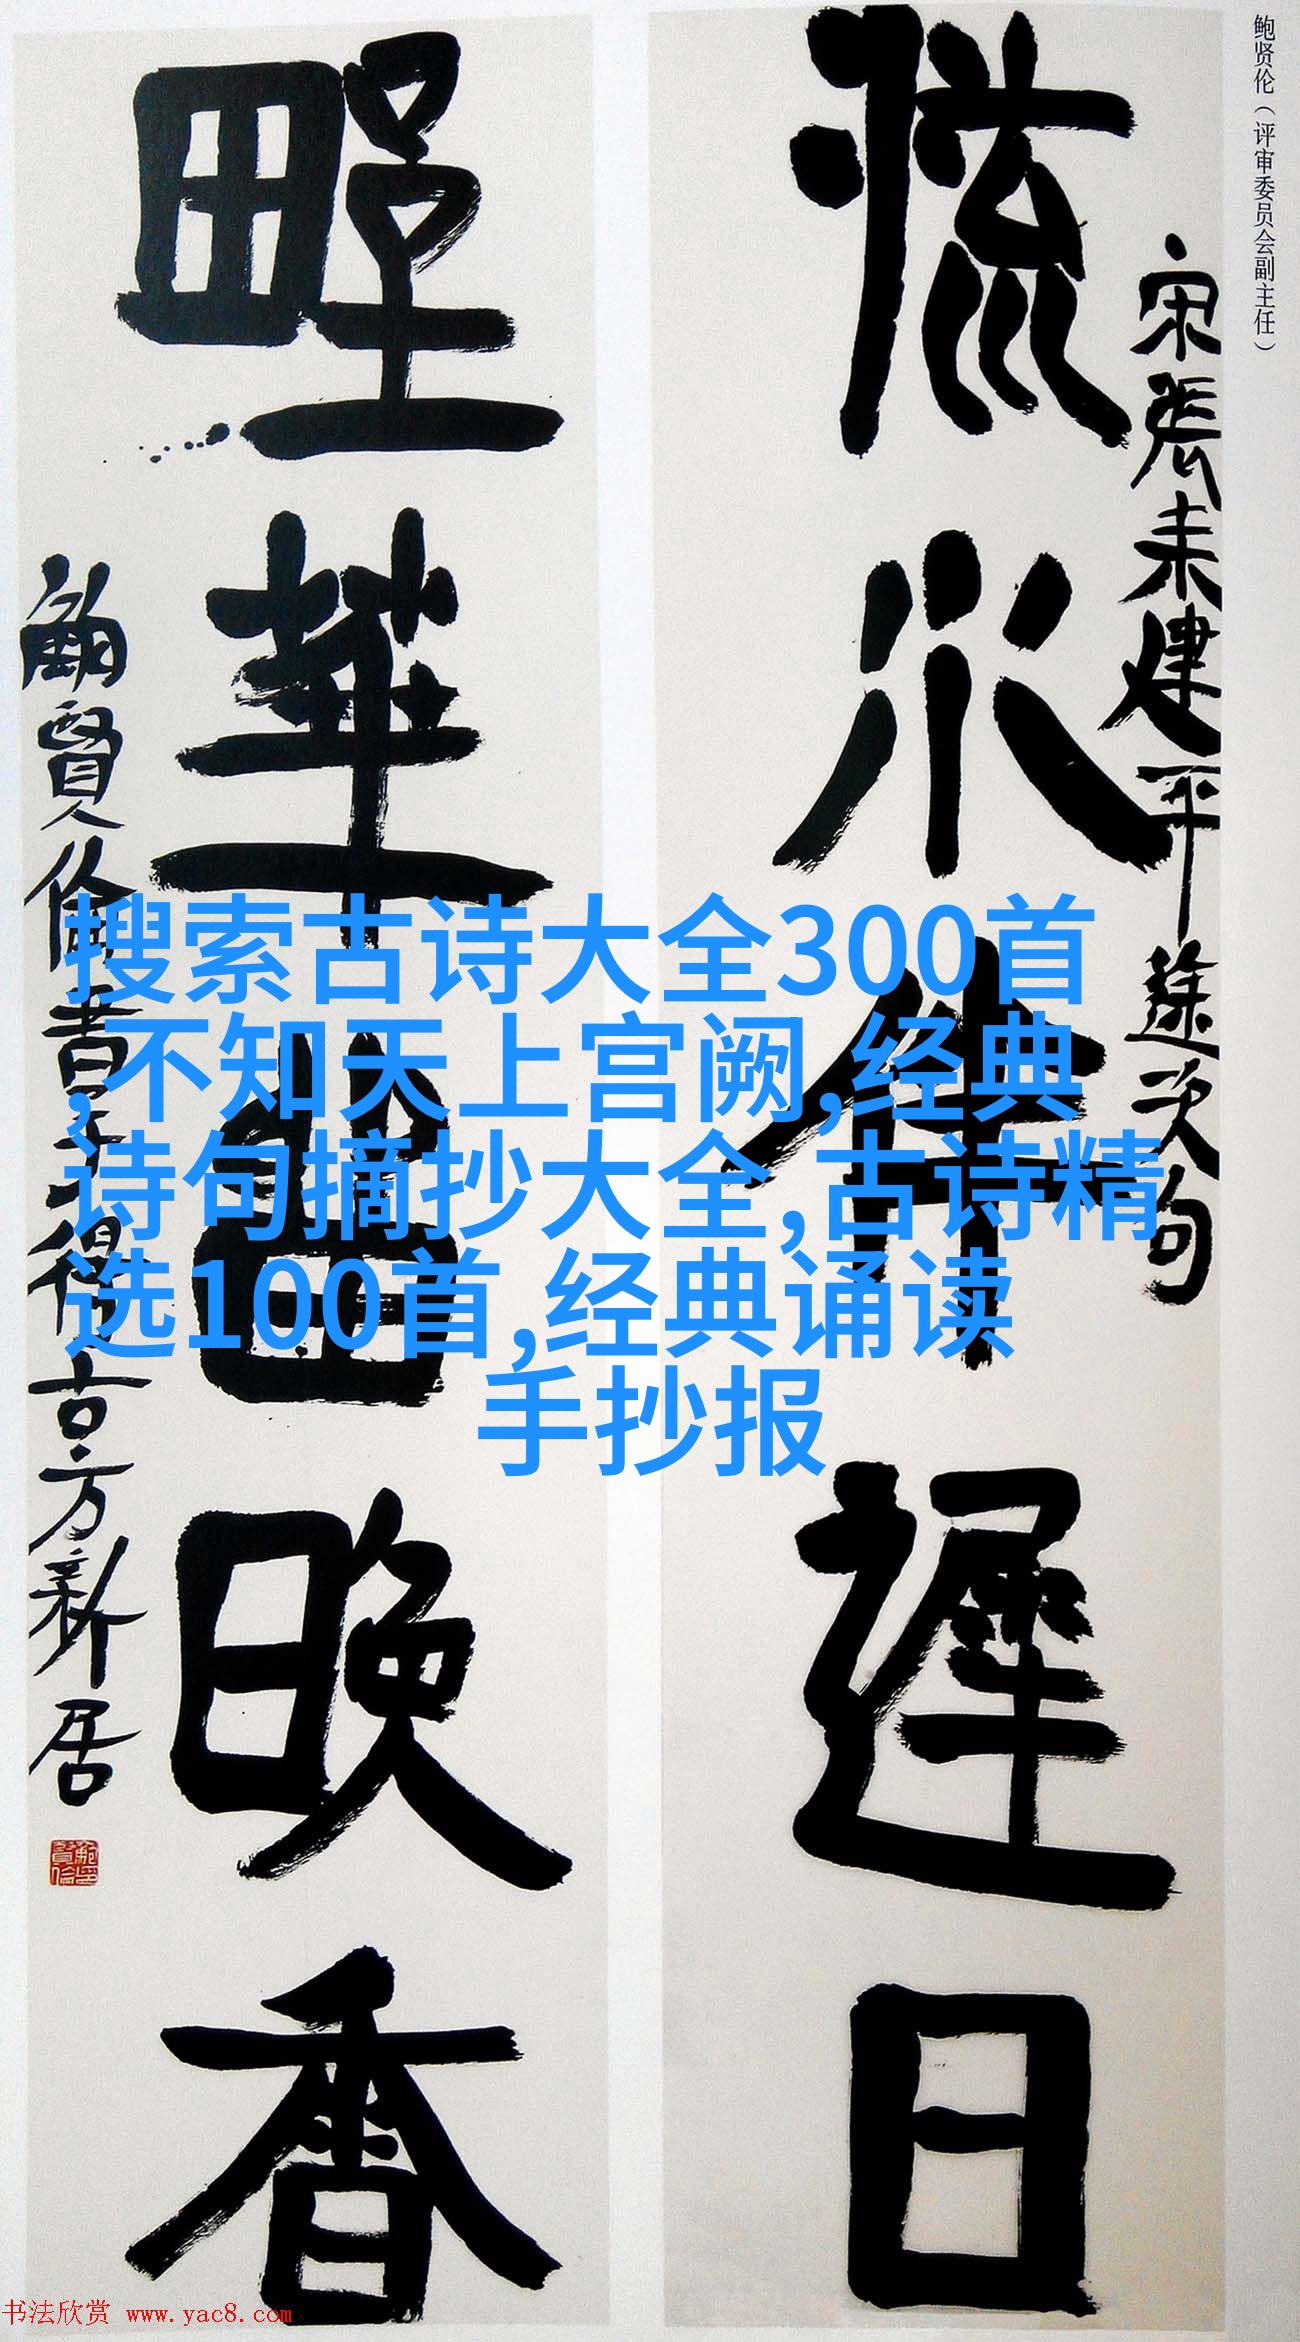 鲍贤伦（评审委员会副主任）
宋張耒建平途次句
流水伴遲日
野華曲晚香
鮑賢倫書于得古方新居
搜索古诗大全300首
,不知天上宫阙,经典
诗句摘抄大全,古诗精
选100首,经典诵读
手抄报
书法欣赏 www.yac8.com